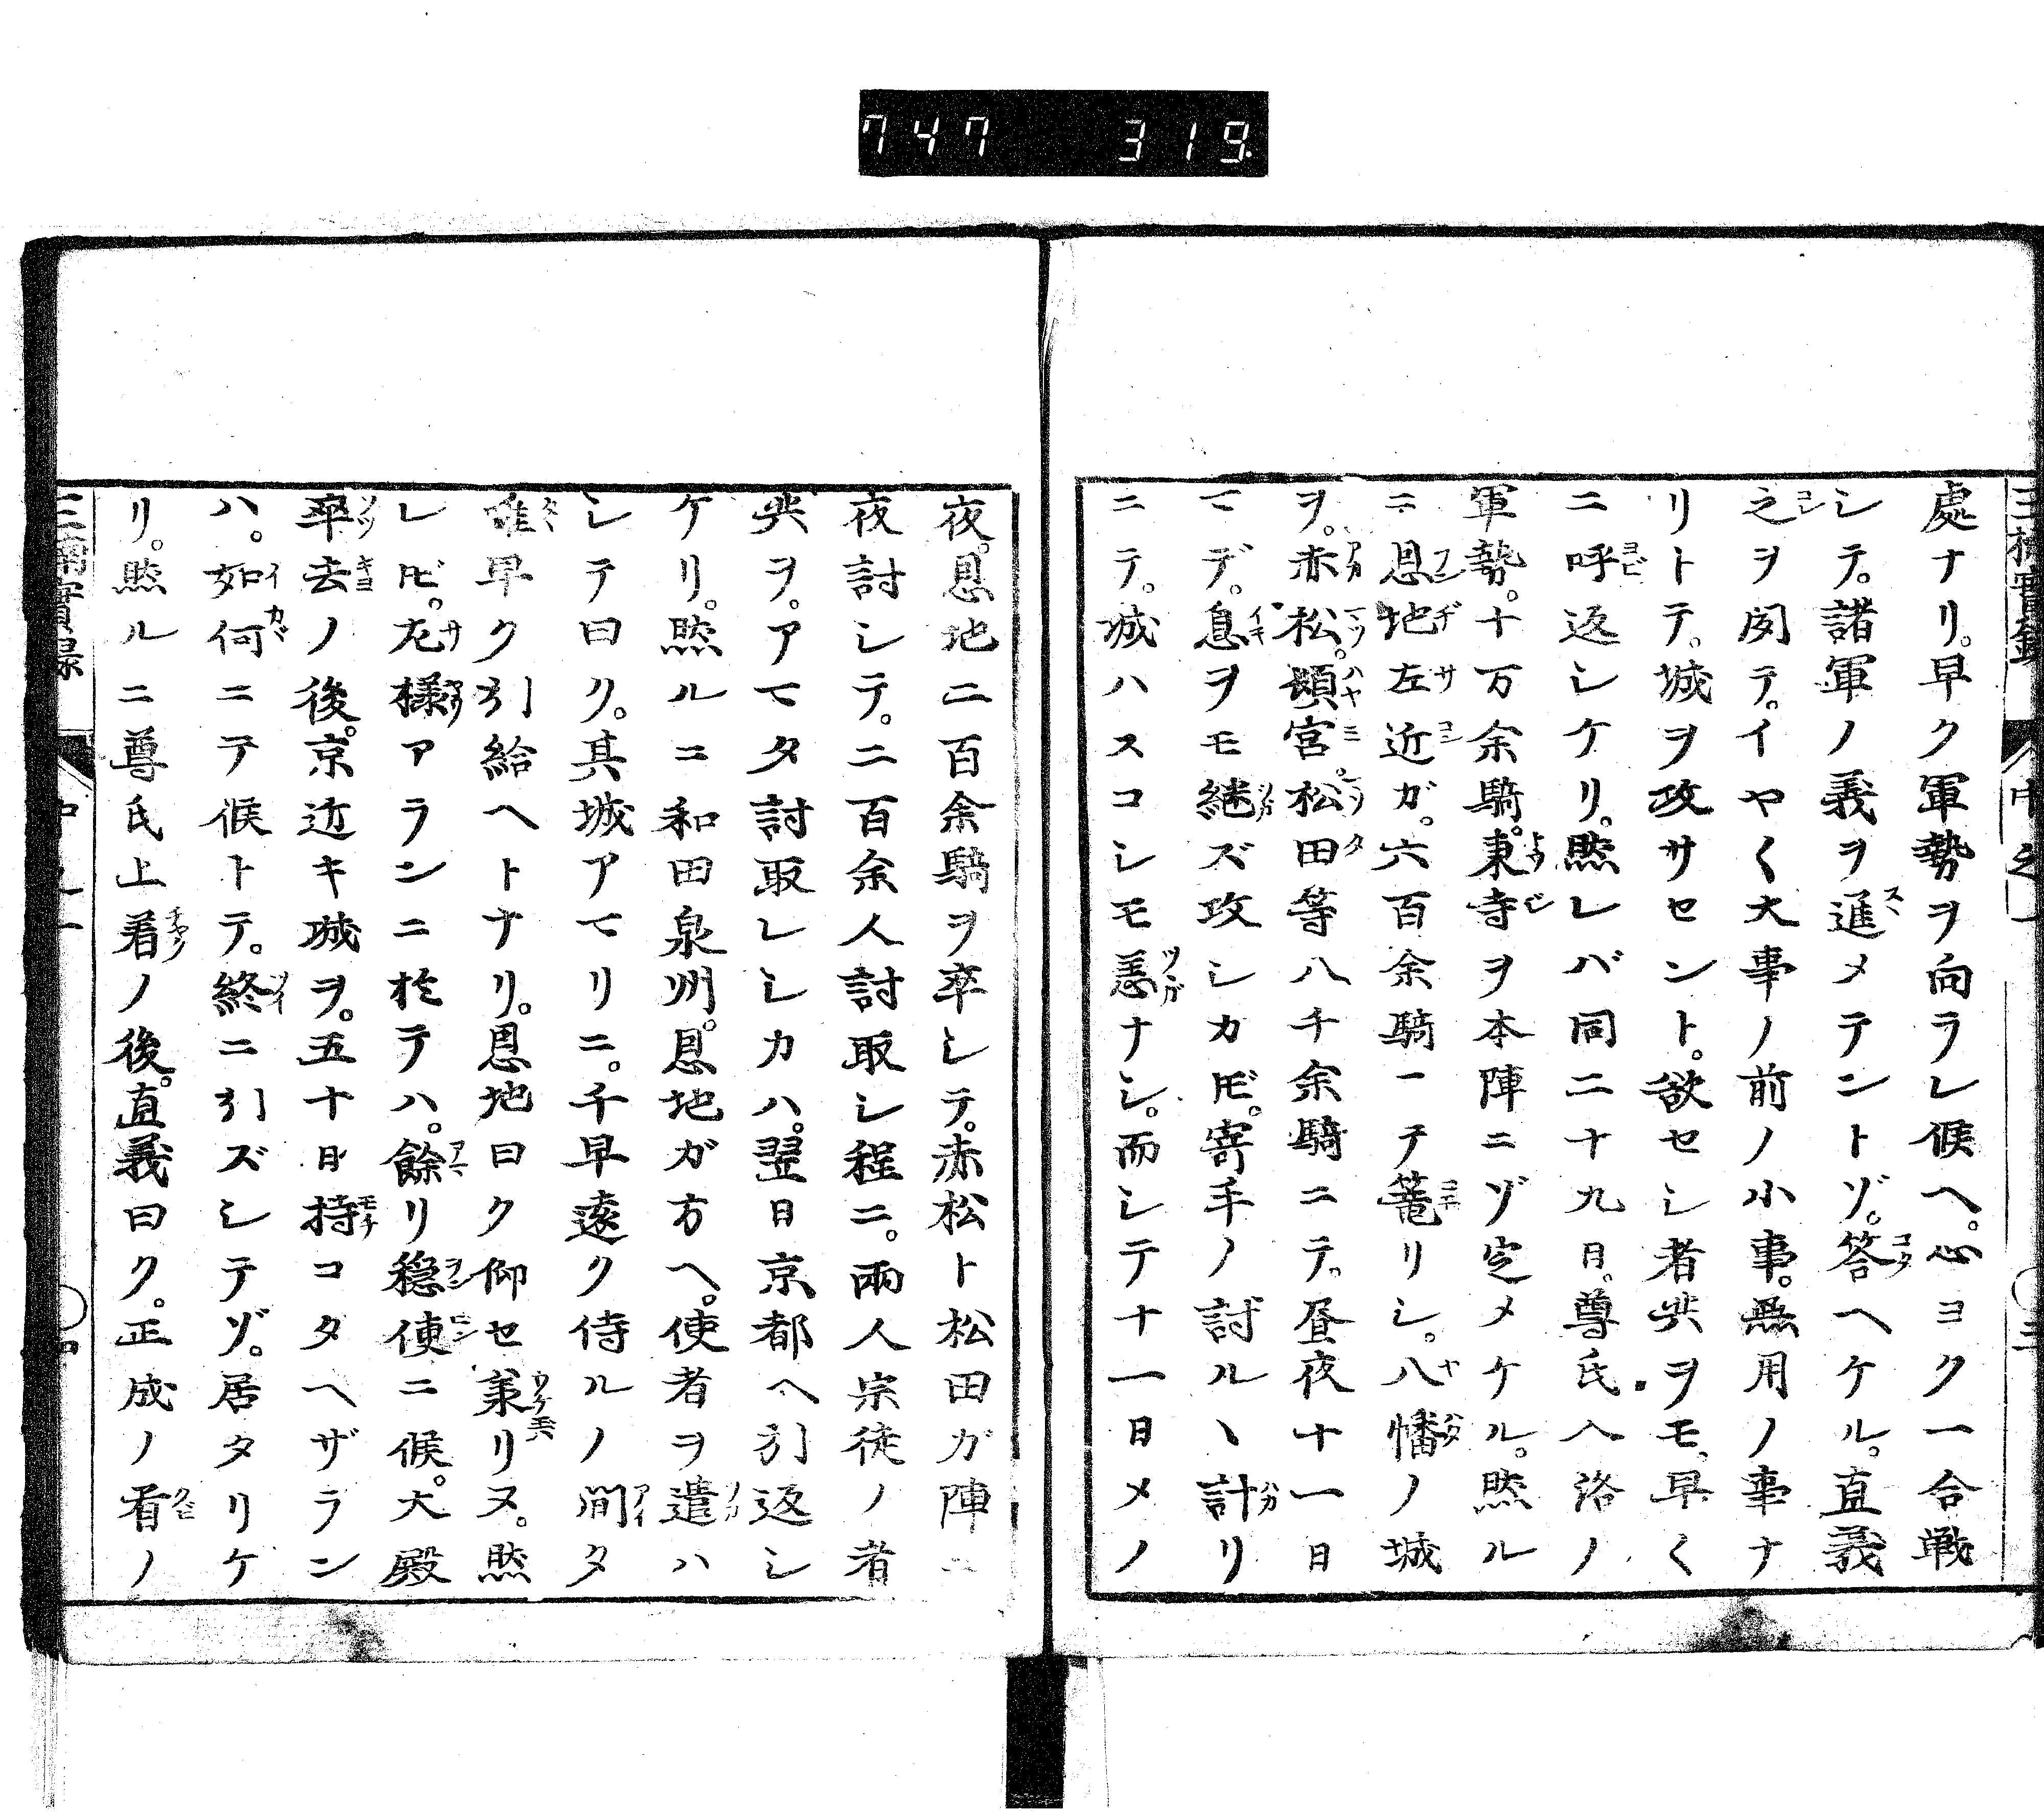 747 319.
處ナリ。早ク軍勢ヲ向ラレ候ヘ。心ヨク一合戦
シテ。諸軍ノ義ヲ進メテントゾ。答ヘケル。直義
之ヲ聞テ。イヤ〱大事ノ前ノ小事。無用ノ事ナ
リトテ。城ヲ攻サセント。欲セシ者共ヲモ、早〱
ニ呼返シケリ。然レバ同二十九日。尊氏入洛ノ
軍勢。十万余騎。東寺ヲ本陣ニゾ定メケル。然ル
ニ恩地左近ガ。六百余騎ニテ篭リシ。八幡ノ城
ヲ。赤松。頓宮。松田等八千余騎ニテ。昼夜十一日
マデ。息ヲモ継ズ攻シカ𪜈。寄手ノ討ルヽ計リ
ニテ。城ハスコシモ恙ナシ。而シテ十一日メノ
夜。恩地二百余騎ヲ卒シテ。赤松ト松田ガ陣ニ
夜討シテ。二百余人討取シ程ニ。兩人宗徒ノ者
共ヲ。アマタ討取レシカハ。翌日京都ヘ引返シ
ケリ。然ルニ和田泉州。恩地ガ方ヘ。使者ヲ遣ハ
シテ曰ク。其城アマリニ。千早遠ク侍ルノ間タ
唯早ク引給ヘトナリ。恩地曰ク仰セ羕リヌ。然
レ𪜈。左様アランニ於テハ。餘リ穏便ニ候。大殿
卒去ノ後。京近キ城ヲ。五十日持コタヘザラン
ハ。如何ニテ候トテ。終ニ引ズシテゾ。居タリケ
リ。然ルニ尊氏上着ノ後。直義曰ク。正成ノ首ノ